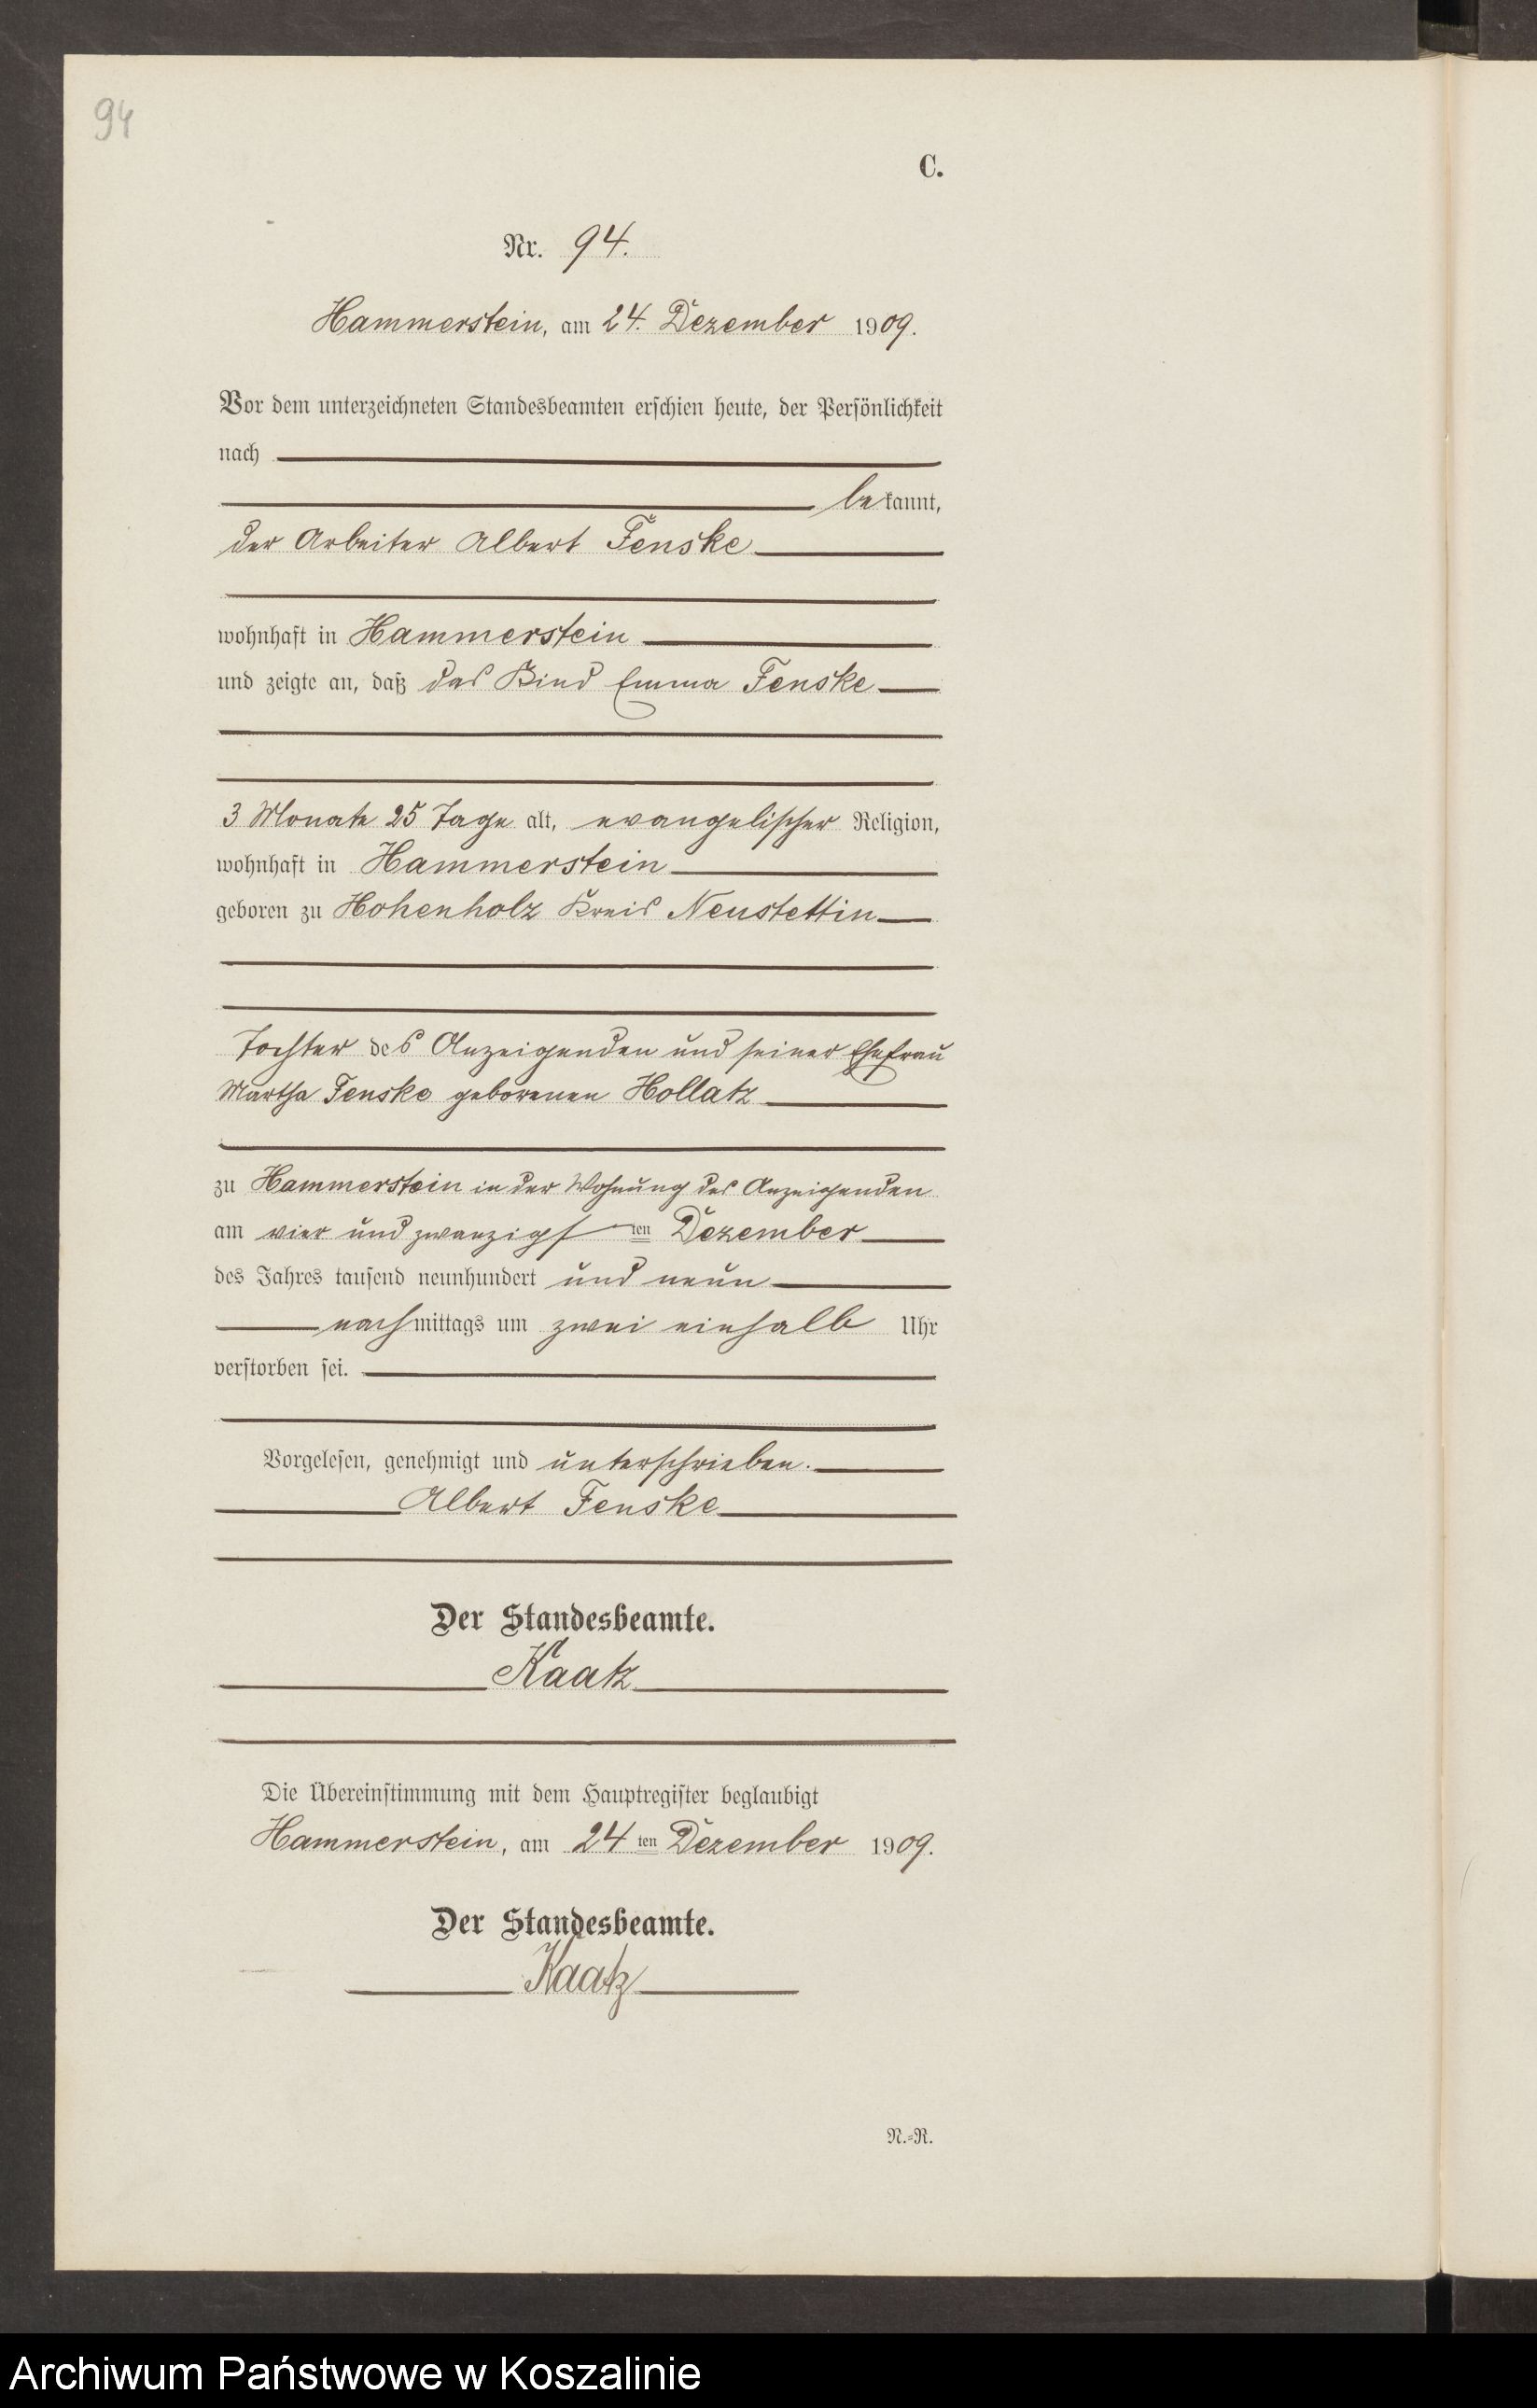 94
C.
Nr. 94.
Hammerstein, am 24. Dezember 1909.
Vor dem unterzeichneten Standesbeamten erschien heute, der Persönlichkeit
nach
bekannt,
der Arbeiter Albert Fenske
wohnhaft in Hammerstein
und zeigte an, daß das Kind Emma Fenske
3 Monate 25 Tage alt, evangelischer Religion,
wohnhaft in Hammerstein
geboren zu Hohenholz Kreis Neustettin
Tochter des Anzeigenden und seiner Ehefrau
Martha Fenske geborenen Hollatz
zu Hammerstein in der Wohnung des Anzeigenden
am vier und zwanzigsten Dezember
des Jahres tausend neunhundert und neun
nachmittags um zwei einhalb Uhr
verstorben sei.
Vorgelesen, genehmigt und unterschrieben.
Albert Fenske
Der Standesbeamte.
Kaatz
Die Übereinstimmung mit dem Hauptregister beglaubigt
Hammerstein, am 24ten Dezember 1909.
Der Standesbeamte.
Kaatz
N.-R.
Archiwum Państwowe w Koszalinie